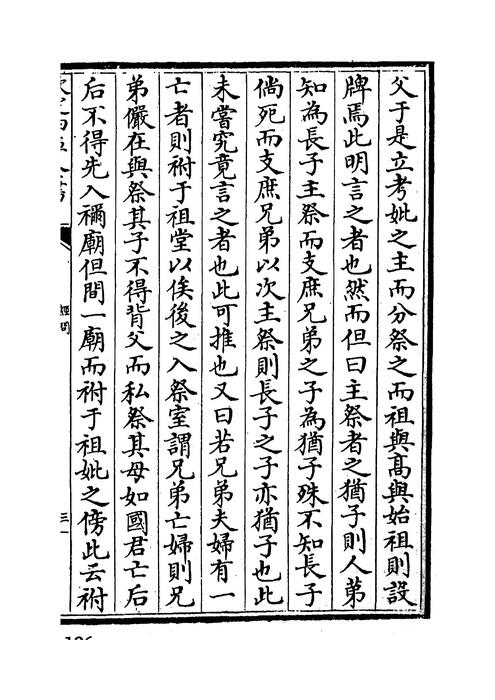 父于是立考妣之主而分祭之而祖與髙與始祖則設
牌焉此明言之者也然而但曰主祭者之猶子則人第
知為長子主祭而支庶兄弟之子為猶子殊不知長子
倘死而支庶兄弟以次主祭則長子之子亦猶子也此
未嘗究竟言之者也此可推也又曰若兄弟夫婦有一
亡者則祔于祖堂以俟後之入祭室謂兄弟亡婦則兄
弟儼在與祭其子不得背父而私祭其母如國君亡后
后不得先入禰廟但間一廟而祔于祖妣之傍此云祔
經問
三一